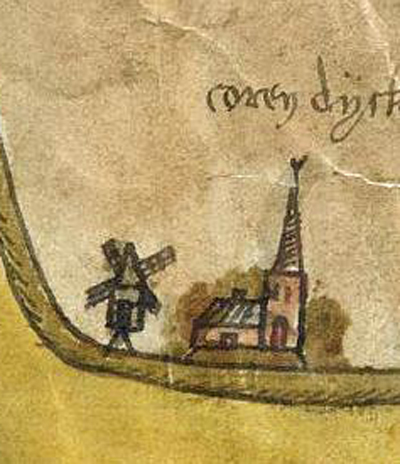 corey dijck